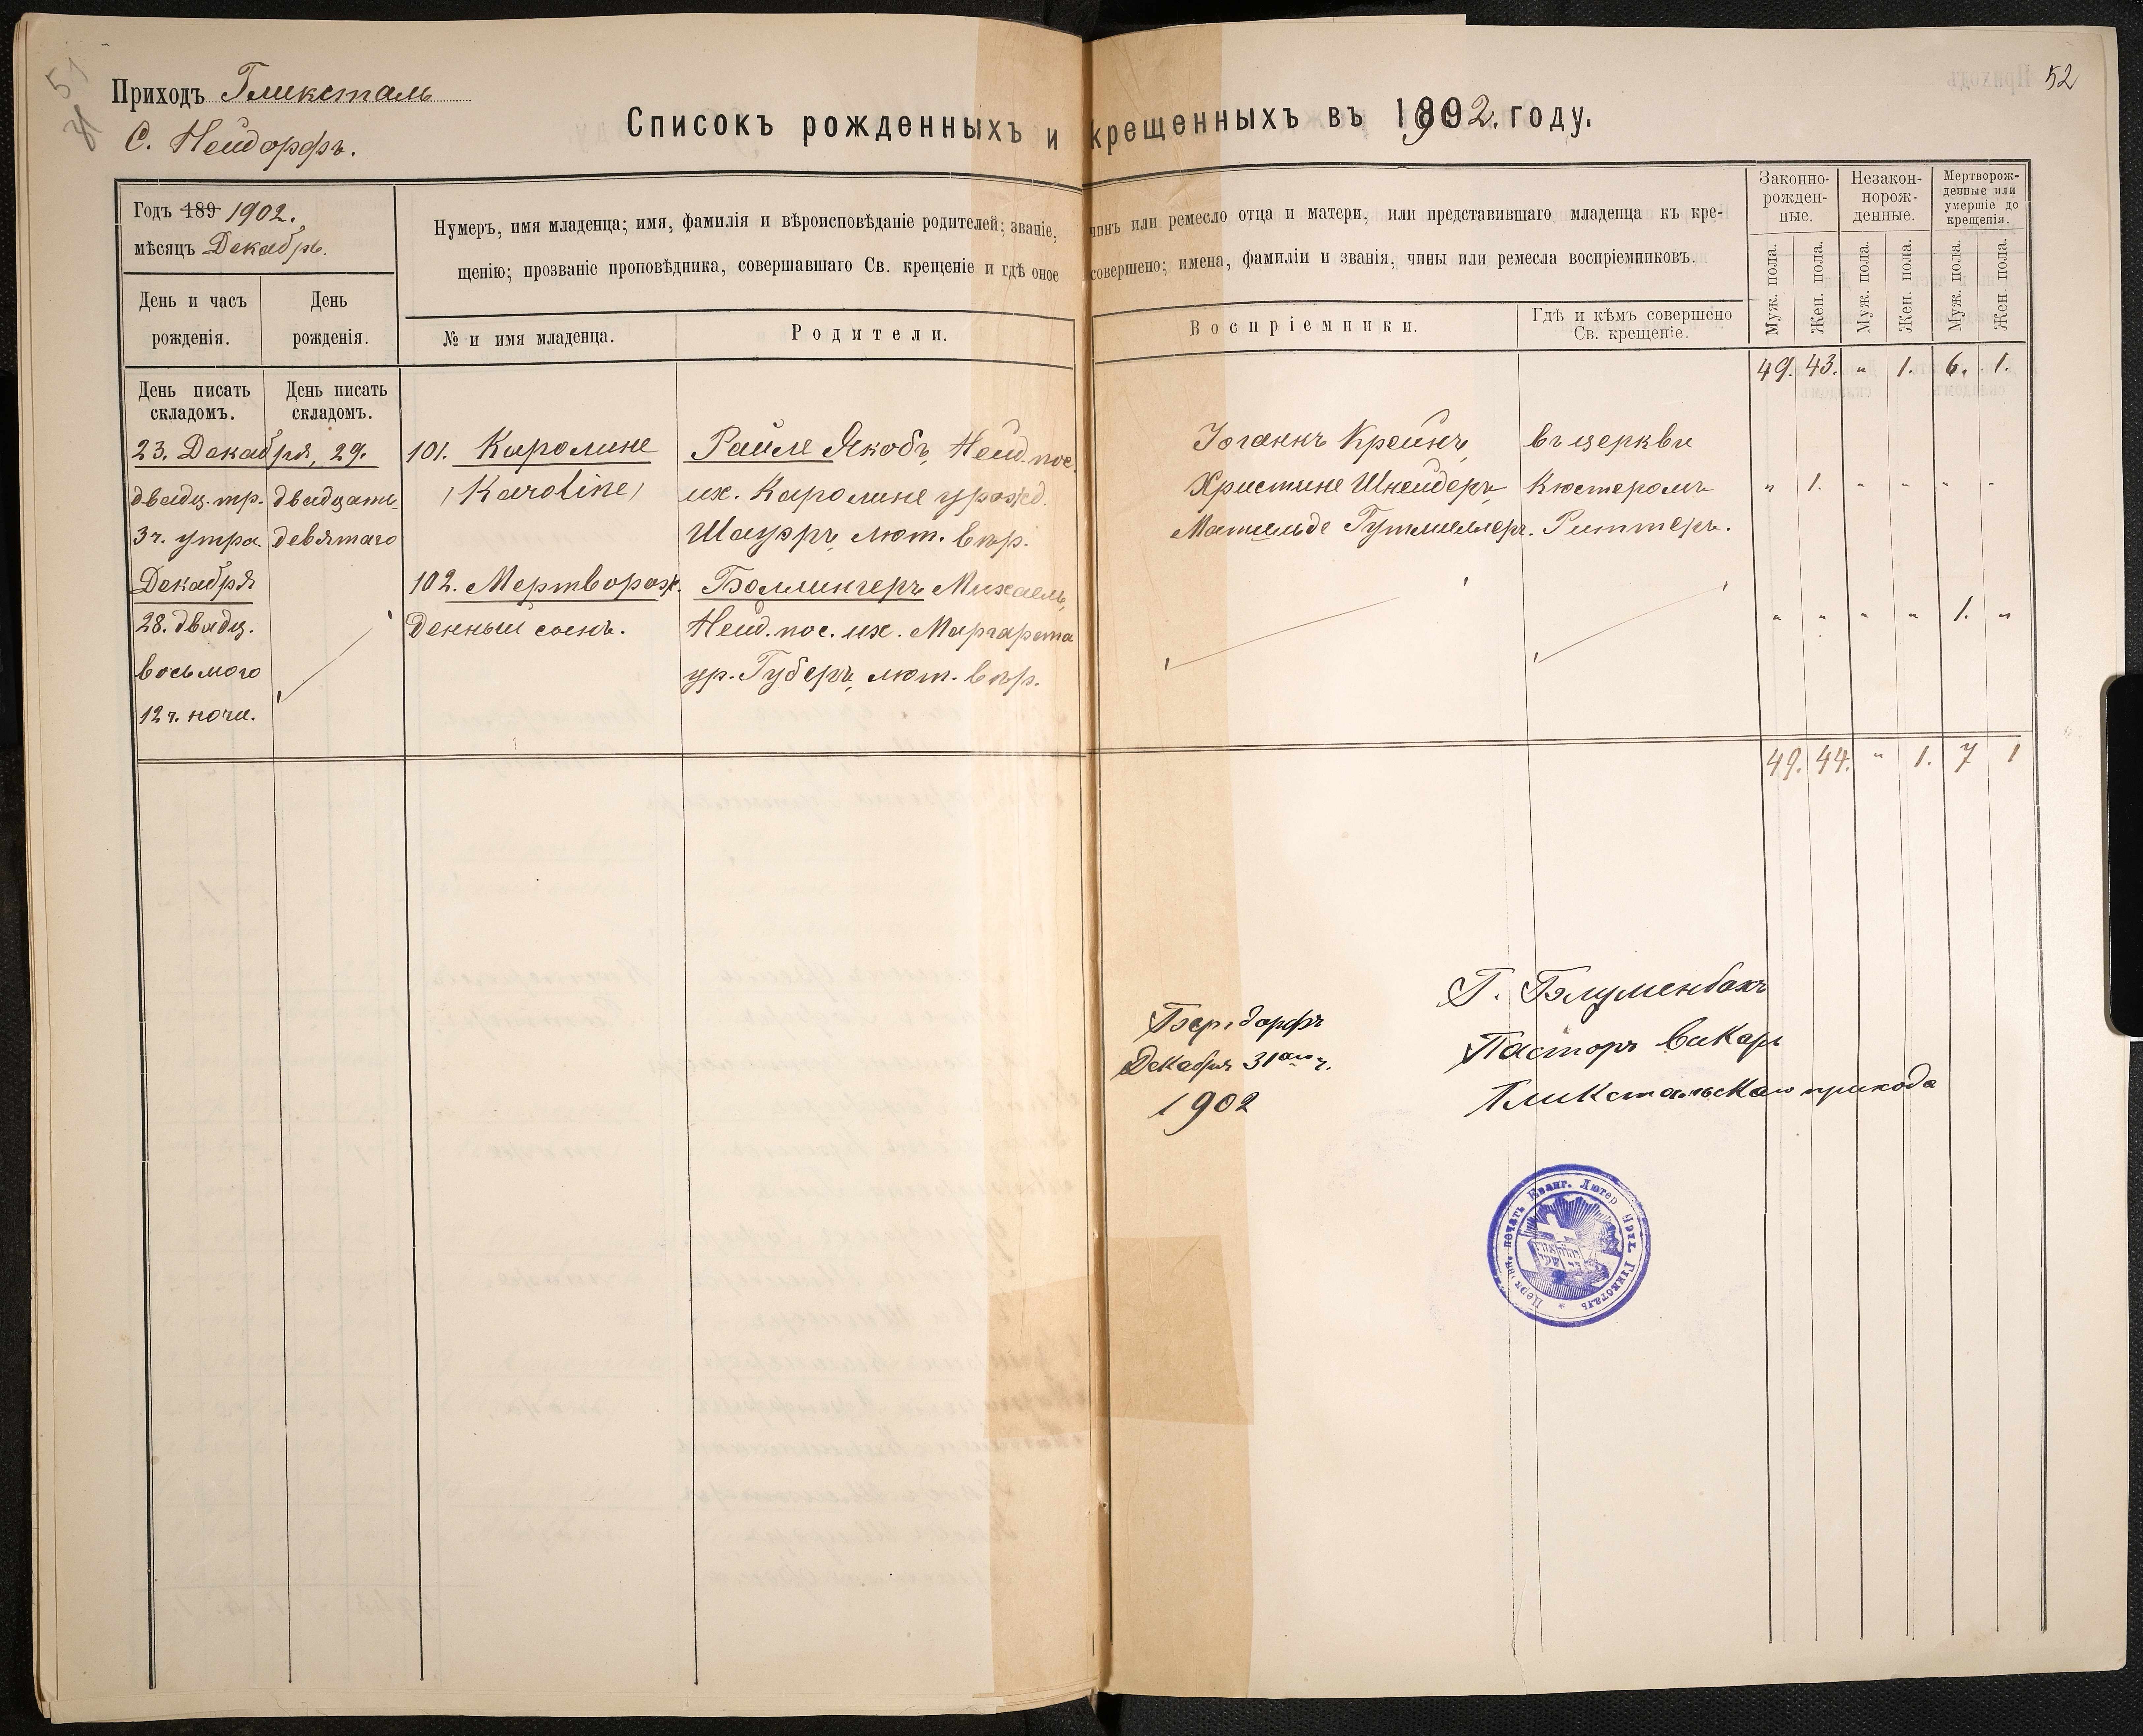 51
52
Приходъ Гликсталь
С. Нейдорфъ.
Списокъ рожденныхъ и крещенныхъ въ 1902. году.
Годъ 189 1902.
мѣсяцъ Декабрь.
Нумеръ, имя младенца; имя, фамилія и вѣроисповѣданіе родителей; званіе, чинъ или ремесло отца и матери, или представившаго младенца къ кре-
щенію; прозваніе проповѣдника, совершавшаго Св. крещеніе и гдѣ оное совершено; имена, фамиліи и званія, чины или ремесла воспріемниковъ.
Законно-
рожден-
ные.
Незакон-
норож-
денные.
Мертворож-
денные или
умершіе до
крещенія.
Муж. пола.
Жен. пола.
Муж. пола.
Жен. пола.
Муж. пола.
Жен. пола.
День и часъ
рожденія.
День
рожденія.
№ и имя младенца.
Родители.
Воспріемники.
Гдѣ и кѣмъ совершено
Св. крещеніе.
День писать
складомъ.
День писать
складомъ.
49. 43. " 1. 6. 1.
23. Декабря, 29.
двадц. тр.
3 ч. утра.
двадцать
девятаго
101. Каролине
(Karoline)
Райле Якобъ, Нейд. пос.
их. Каролине урожд.
Шауэръ, лют. вѣр.
Іоганнъ Крейнъ,
Христине Шнейдеръ,
Матильде Гутмиллеръ.
въ церкви
Кюстеромъ
Риттеръ.
" 1. " " " "
Декабря
28. двадц.
восьмого
12 ч. ночи.
102. Мертворож.
денный сынъ.
Боллингеръ Михаель,
Нейд. пос. их. Маргарета
ур. Губеръ, лют. вѣр.
" " " " 1. "
49. 44. " 1. 7 1
Бергдорфъ
Декабря 31го ч.
1902
Г. Блуменбахъ
Пасторъ викарь
Гликстальскаго прихода
Церковн. печать Еванг. Лютер. Церк. Гликсталь *